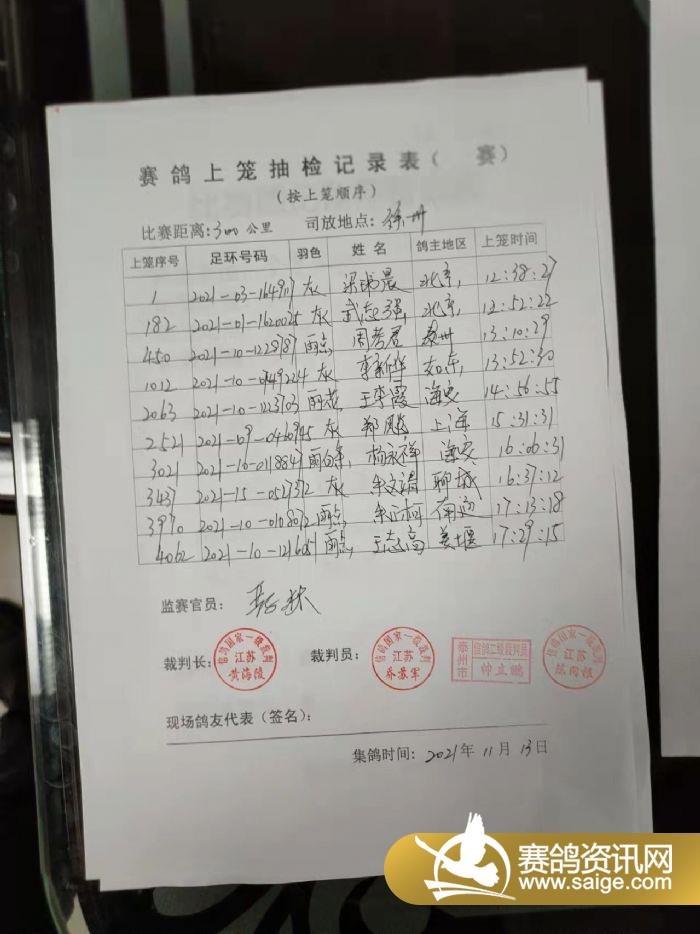 赛鸽上笼抽检记录表( 赛)
(按上笼顺序)
比赛距离:300公里 司放地点:徐州
上笼序号 足环号码 羽色 姓名 鸽主地区 上笼时间
1 灰 北京, 12:38:27
182 灰 武志强, 北京, 12:52:22
450 雨点, 泰州 13:10:29
1012 灰 如东, 13:52:30
2063 2021-10-1223703 雨花 王李霞 海安 14:56:55
2521 2021-09-0460945 灰 郑鹏 上海 15:31:31
3021 2021-10-0118847 雨白条, 杨永祥 海安 16:06:31
3437 2021-15-0527372 灰 聊城 16:37:12
3970 雨点, 南通 17:13:18
4062 雨点, 王志高 姜堰 17:29:15
监赛官员:
裁判长: 信鸽国家一级裁判 江苏 黄海陵 裁判员: 信鸽国家一级裁判 江苏 乔苏军 泰州市 信鸽二级裁判员 帅立鹏 信鸽国家一级裁判 江苏
现场鸽友代表(签名):
集鸽时间: 2021年11月13日
赛鸽资讯网
www.saige.com